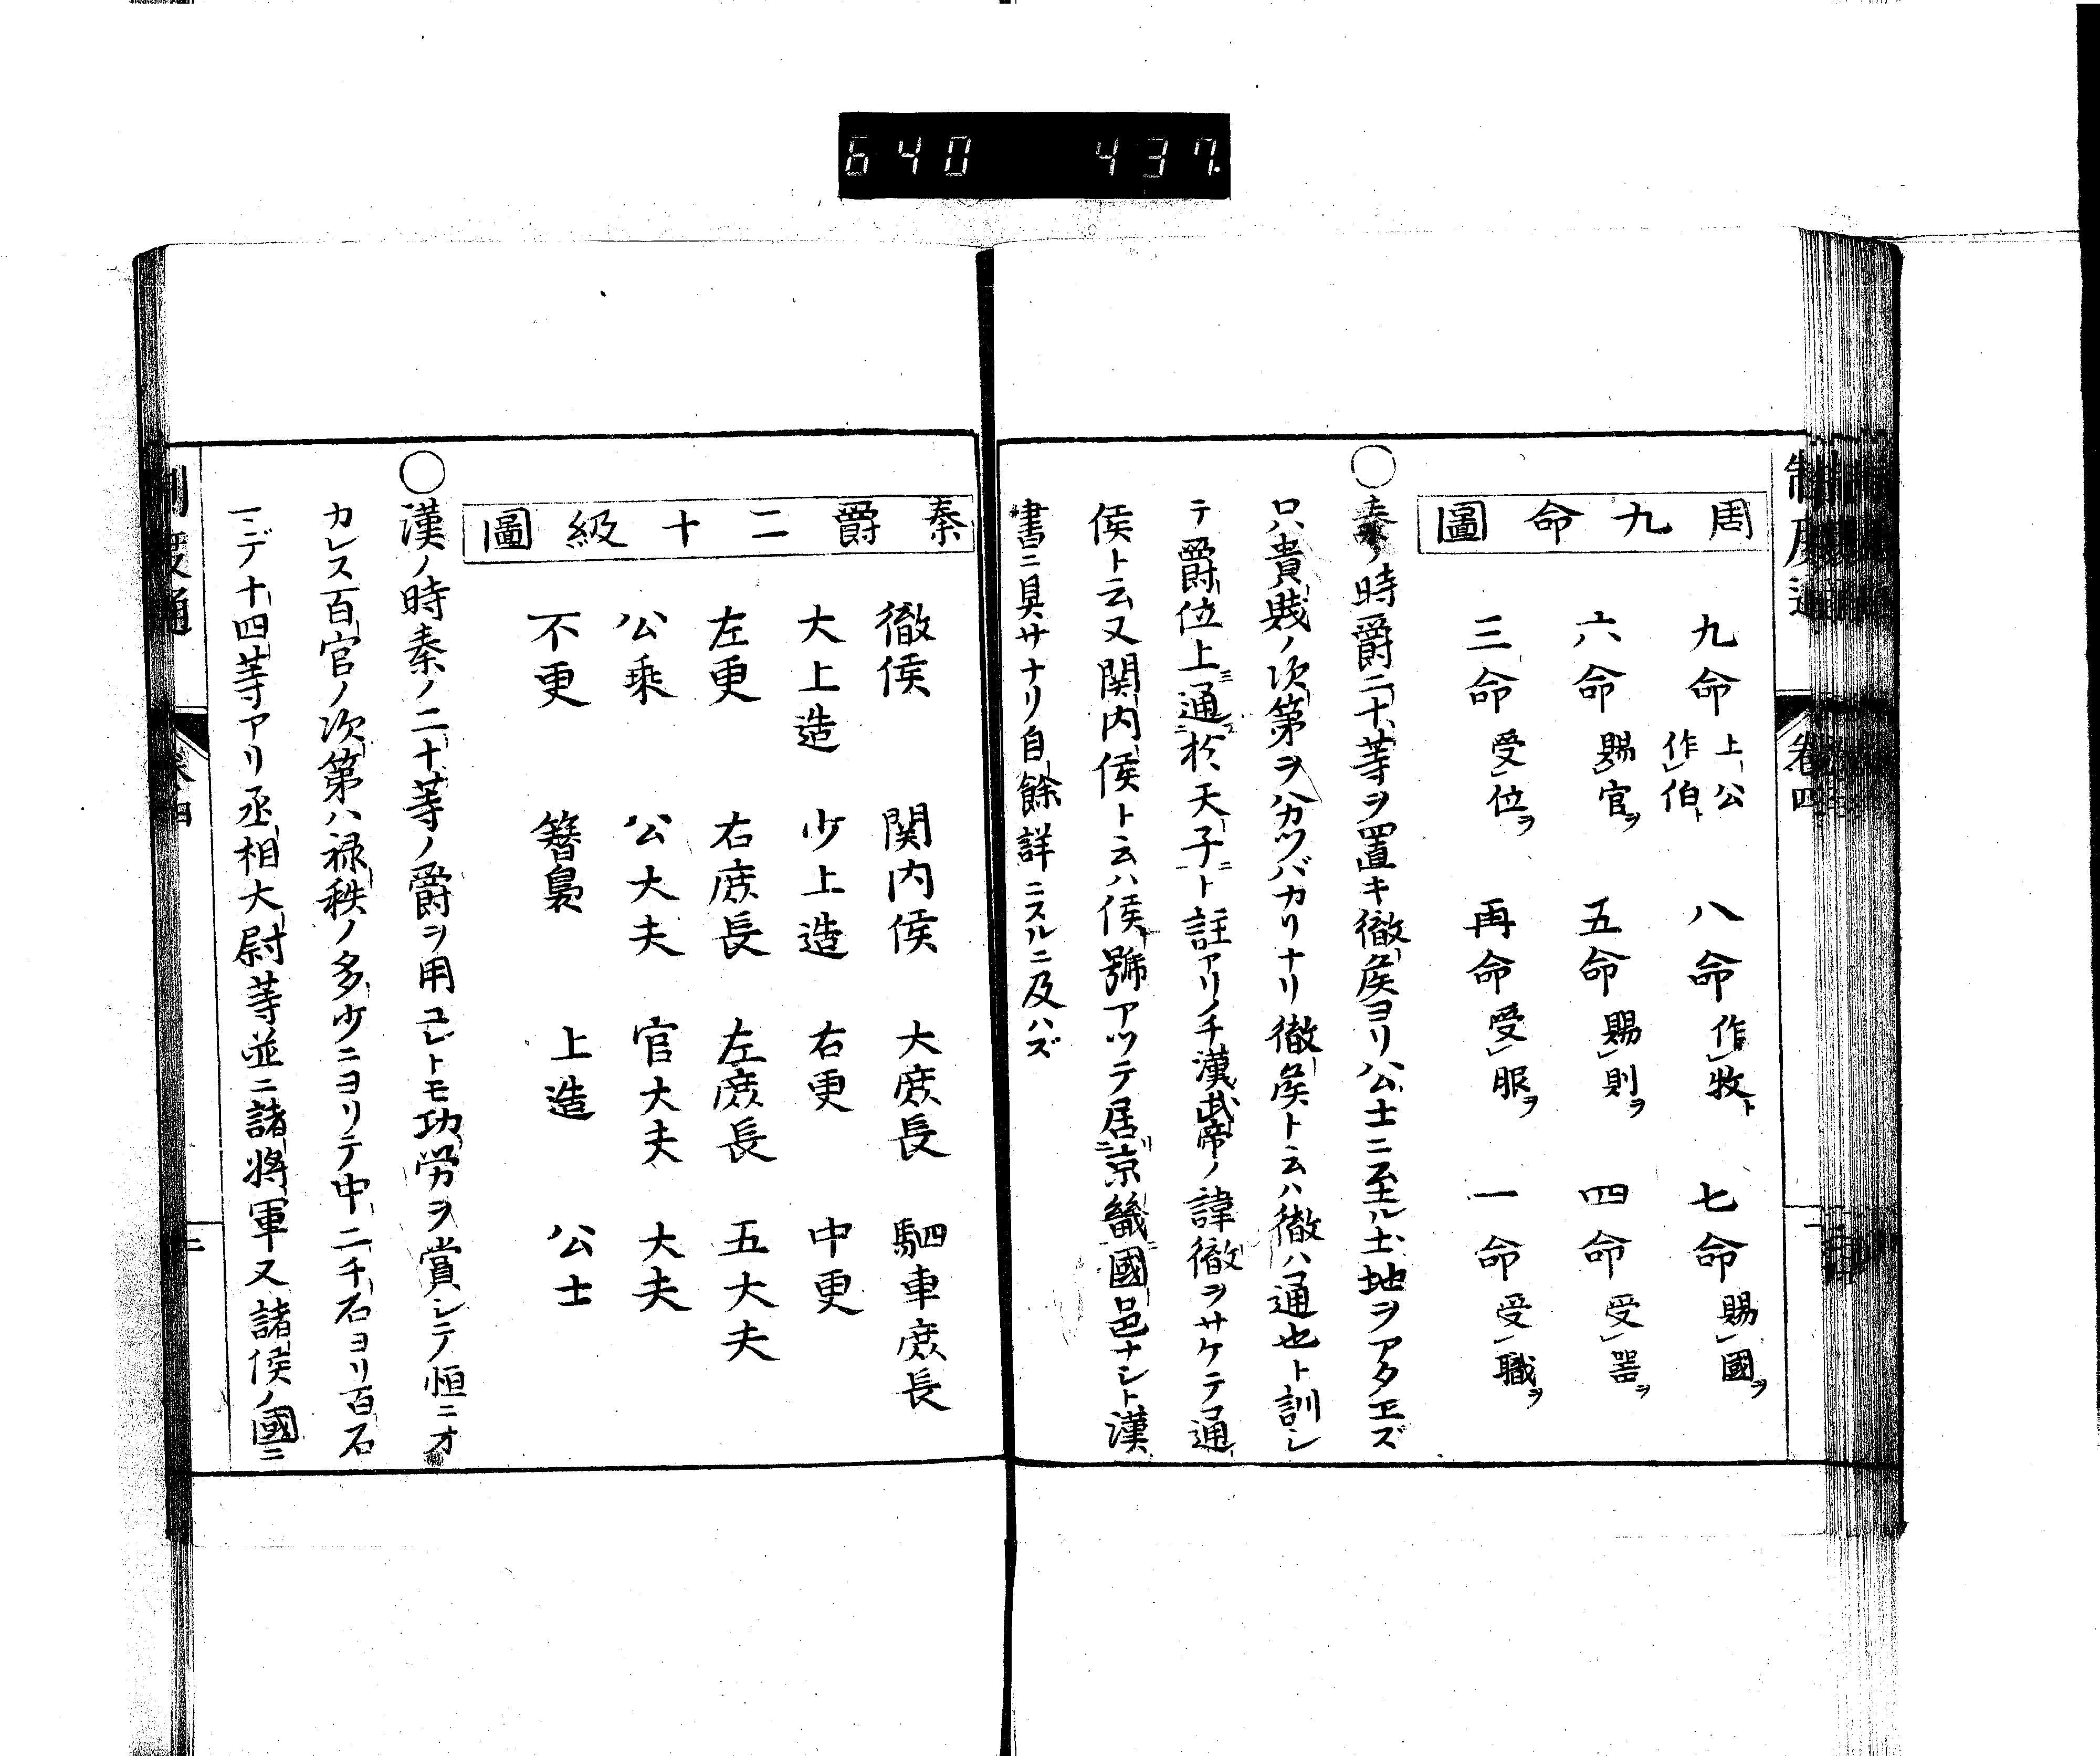 640 437.
制度通 巻四
周九命圖
九命 上公作伯ト 八命 作牧ト 七命 賜國ヲ
六命 賜官ヲ 五命 賜則ヲ 四命 受噐ヲ
三命 受位ヲ 再命 受服ヲ 一命 受職ヲ
○秦ノ時爵二十等ヲ置キ徹矦ヨリ公士ニ至ル土地ヲアタエズ
只貴賎ノ次第ヲハカツバカリナリ徹矦ト云ハ徹ハ通也ト訓シ
テ爵位上通於天子ニト註アリノチ漢武帝ノ諱徹ヲサケテ通
侯ト云又関内侯ト云ハ侯號アツテ居京畿國邑ナシト漢
書ニ具サナリ自餘詳ニスルニ及ハズ
秦爵二十級圖
徹侯 関内侯 大庻長 駟車庻長
大上造 少上造 右更 中更
左更 右庻長 左庻長 五大夫
公乘 公大夫 官大夫 大夫
不更 簪裊 上造 公士
○漢ノ時秦ノ二十等ノ爵ヲ用ユレトモ功労ヲ賞シテ恒ニオ
カレス百官ノ次第ハ禄秩ノ多少ニヨリテ中二千石ヨリ百石
マデ十四等アリ丞相大尉等並ニ諸將軍又諸侯ノ國ニ
制度通